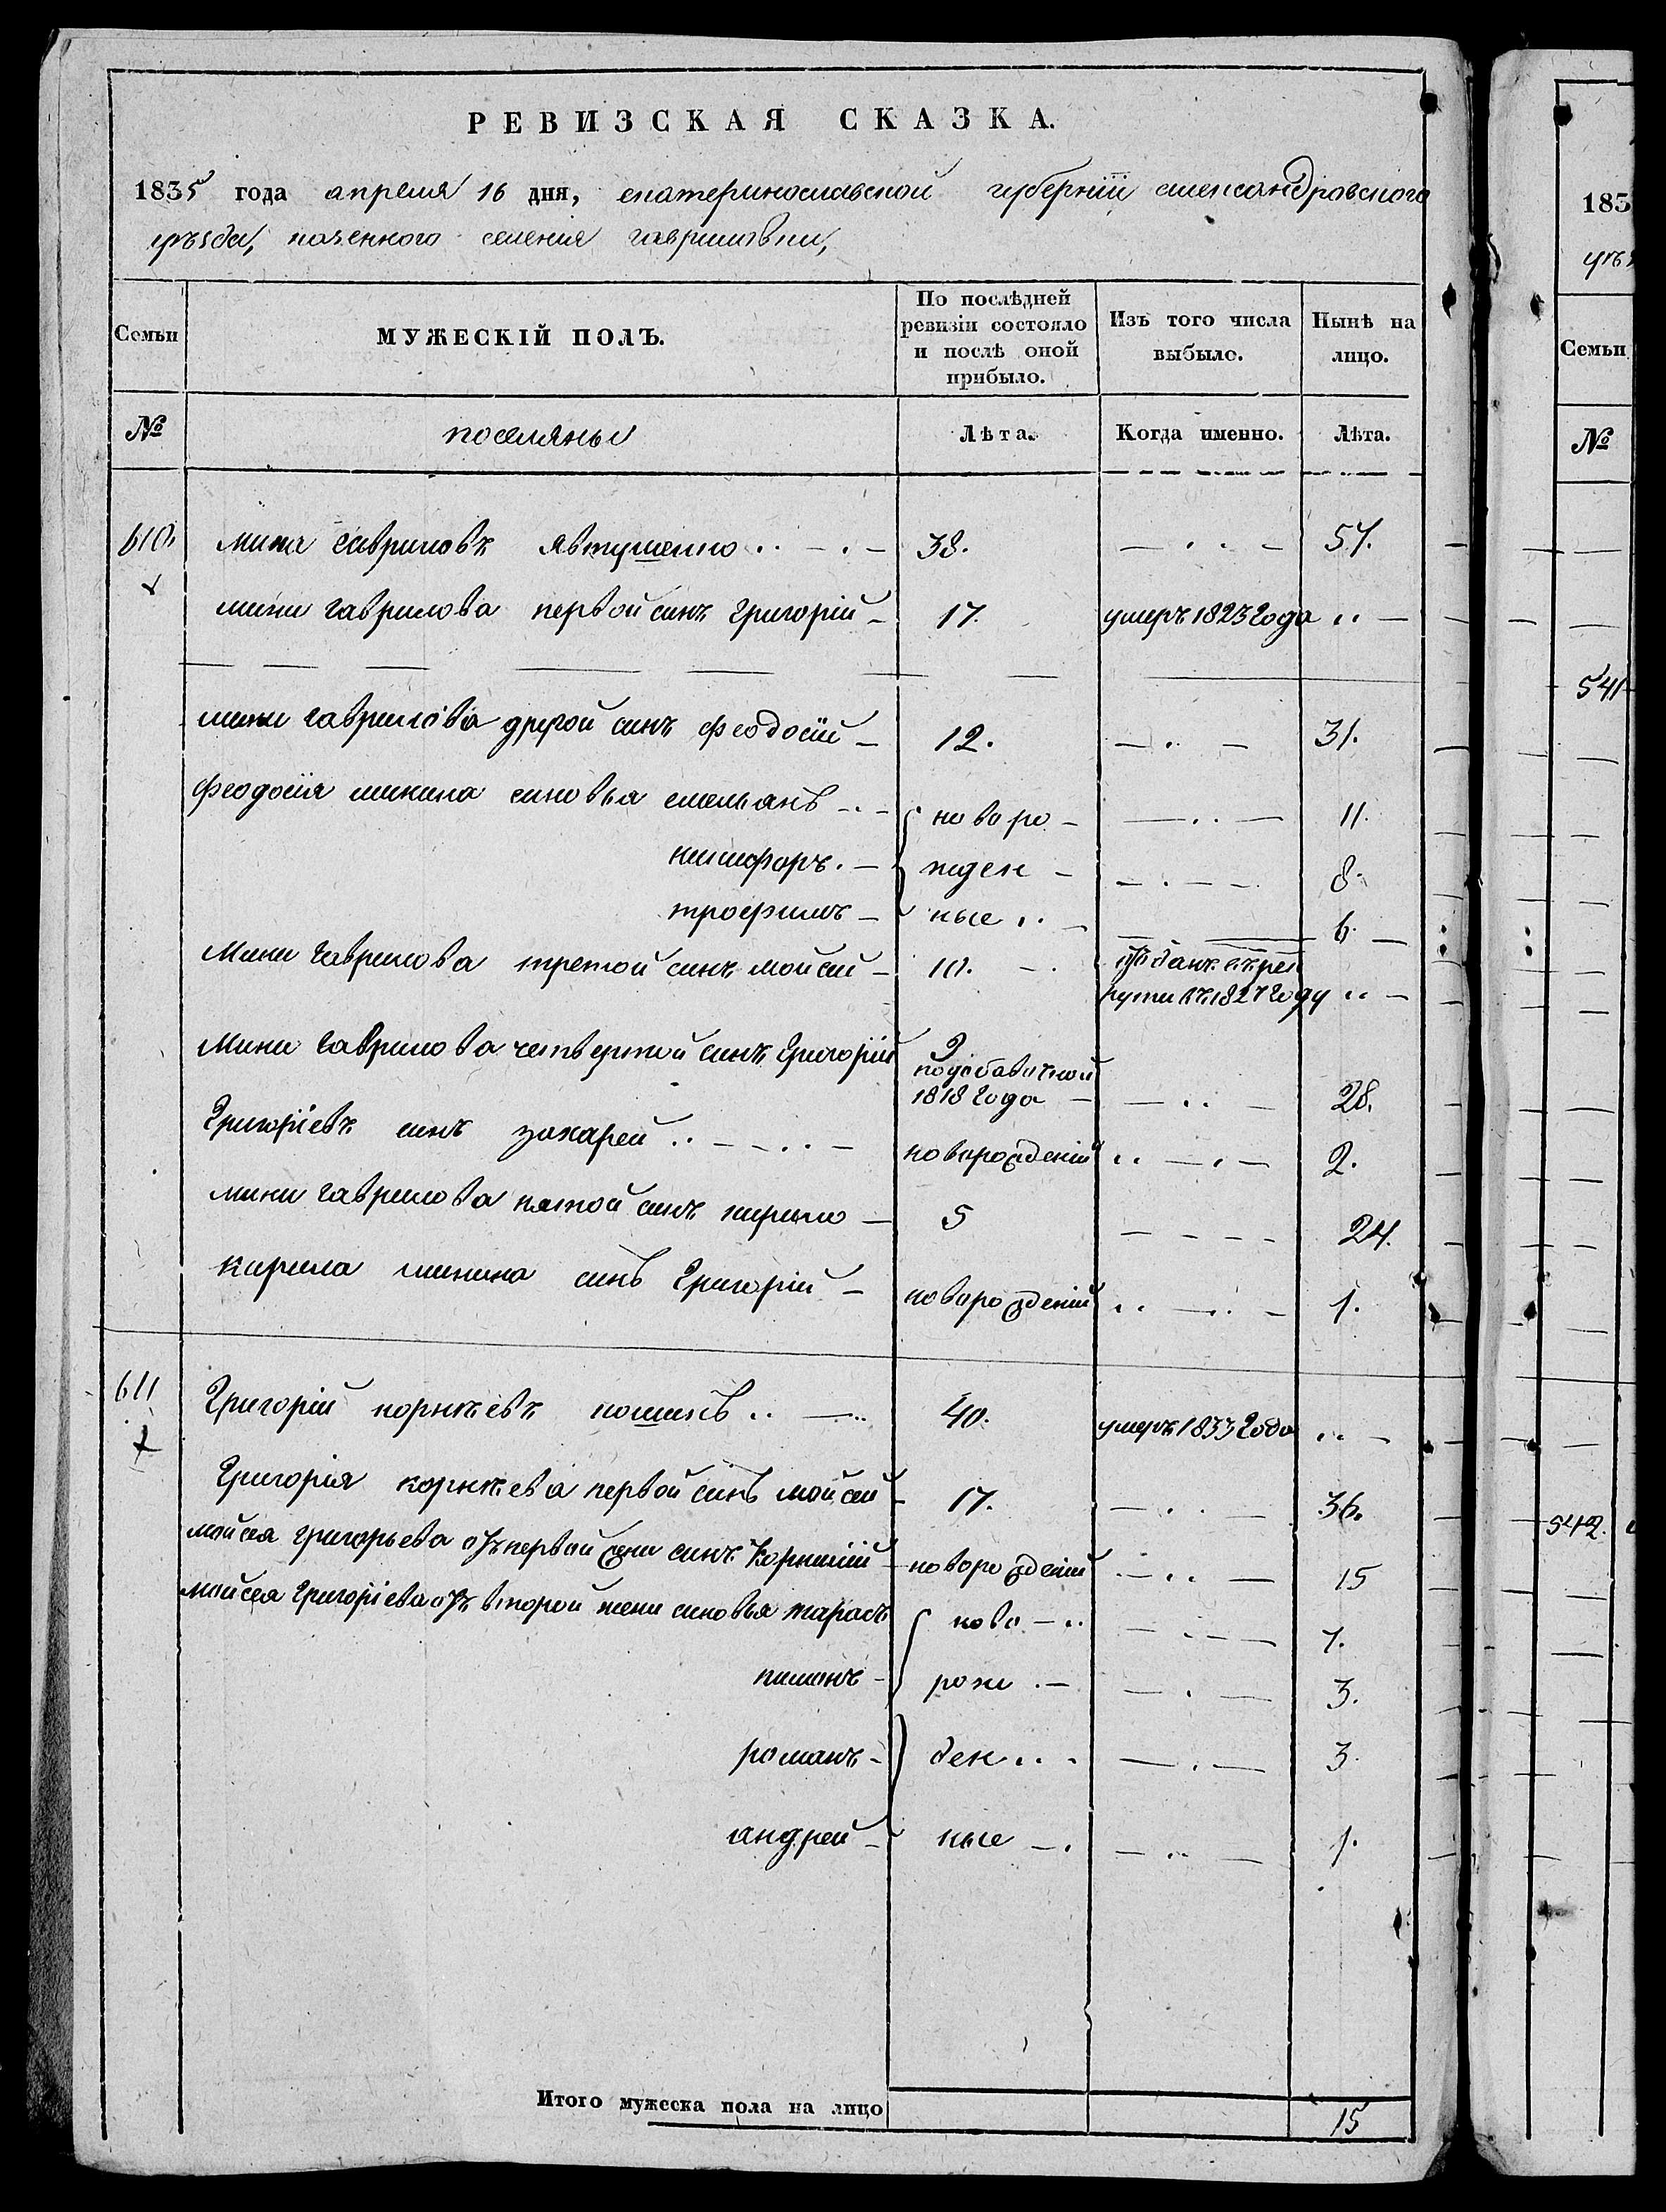 РЕВИЗСКАЯ СКАЗКА.
1835 года апреля 16 дня, екатеринославской губернїи александровского
уѣзда, казенного селения гавриловки,
Семьи
МУЖЕСКІЙ ПОЛЪ.
По послѣдней ревизіи состояло и послѣ оной прибыло.
Изъ того числа выбыло.
Нынѣ на лицо.
№ поселяны Лѣта. Когда именно. Лѣта.
610. мина гавриловъ явтушенко 38. 57.
мини гаврилова первой синъ григорій 17. умеръ 1823 года
мини гаврилова другой синъ феодосїй 12. 31.
феодосїя минина синовья емельянъ новоро 11.
никифоръ. жден 8.
трофимъ ные 6.
мини гаврилова третой синъ мойсей 10. отданъ въ рек
рути въ 1827 году
мини гаврилова четвертой синъ григорій 9
подобавочной
1818 года 28.
григорієвъ синъ захарей новорожденій 2.
мини гаврилова пятой синъ кирило 5 24.
кирила минина синъ григорій новорожденій 1.
611 григорій корнѣевъ кошикъ 40. умеръ 1833 года
григорія корнѣева первой синъ мойсей 17. 36.
мойсея григорьева отъ первой жени синъ корнилій новорожденій 15
мойсея григорієва отъ второй жени синовья тарасъ ново 7.
рож 3.
романъ ден 3.
андрей ные 1.
Итого мужеска пола на лицо 15
183
уѣз
Семьи
№
541
542.